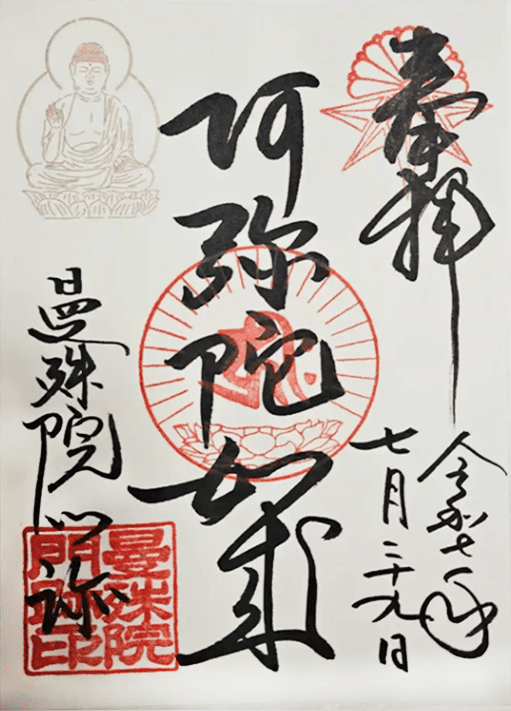 奉拝
令和七年
七月二十九日
阿弥陀如来
曼殊院門跡
曼殊院
門跡印